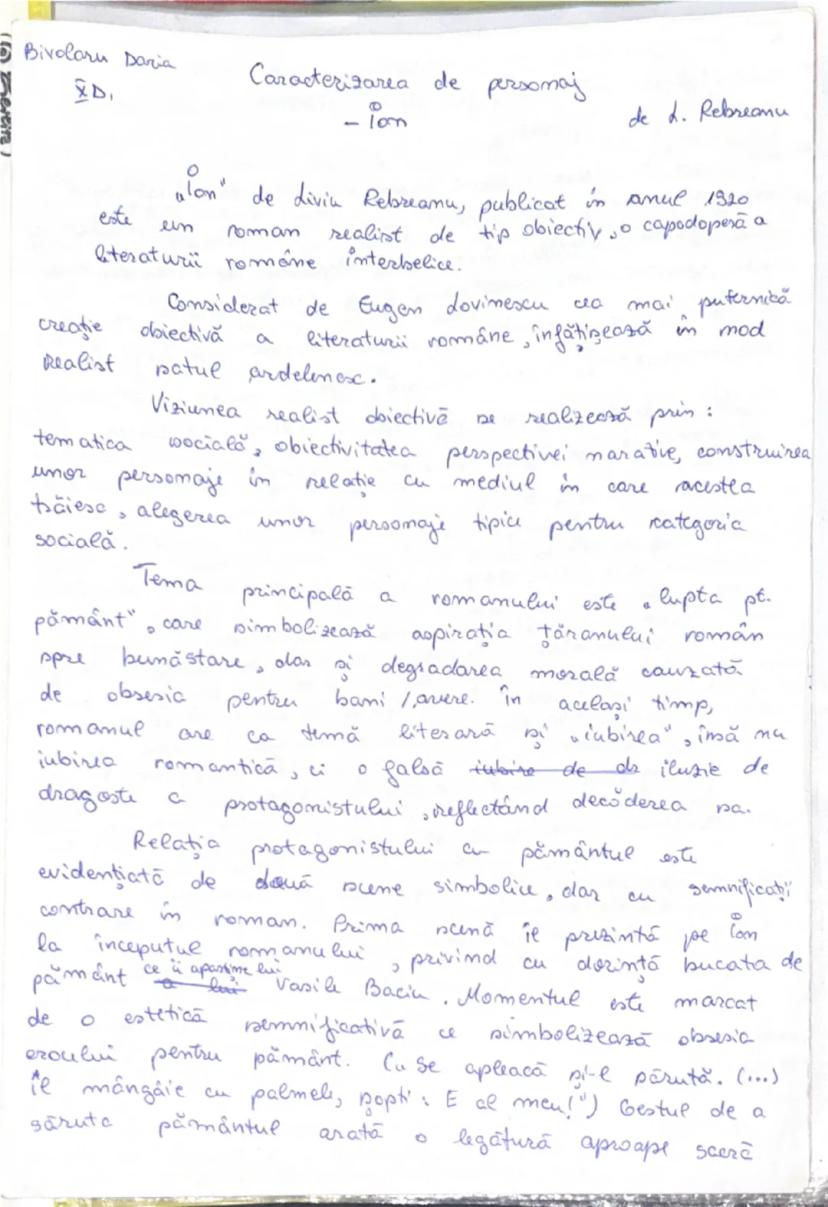 Bivolaru Daria
X D1
Caracterizarea de personaj
- Ion
de L. Rebreanu
„Ion" de Liviu Rebreanu, publicat în anul 1920
este un roman realist de tip obiectiv, o capodoperă a
literaturii române interbelice.
Considerat de Eugen Lovinescu cea mai puternică
creație obiectivă a literaturii române, înfățișează în mod
realist satul ardelenesc.
Viziunea realist obiectivă se realizează prin:
tematica socială, obiectivitatea perspectivei narative, construirea
unor personaje în relație cu mediul în care acestea
trăiesc, alegerea unor personaje tipice pentru categoria
socială.
Tema principală a romanului este „lupta pt.
pământ", care simbolizează aspirația țăranului român
spre bunăstare, dar și degradarea morală cauzată
de obsesia pentru bani /,avere. În același timp,
romanul are ca temă literară și „iubirea", însă nu
iubirea romantică, ci o falsă iubire de iluzie de
dragoste a protagonistului, reflectând decăderea sa.
Relația protagonistului cu pământul este
evidențiată de două scene simbolice, dar cu semnificații
contrare în roman. Prima scenă îl prezintă pe Ion
la începutul romanului, privind cu dorință bucata de
pământ ce îi aparține lui Vasile Baciu. Momentul este marcat
de o estetică semnificativă ce simbolizează obsesia
eroului pentru pământ. (u Se apleacă și-l sărută. (...)
îl mângâie cu palmele, șopti: E al meu!") Gestul de a
săruta pământul arată o legătură aproape sacră